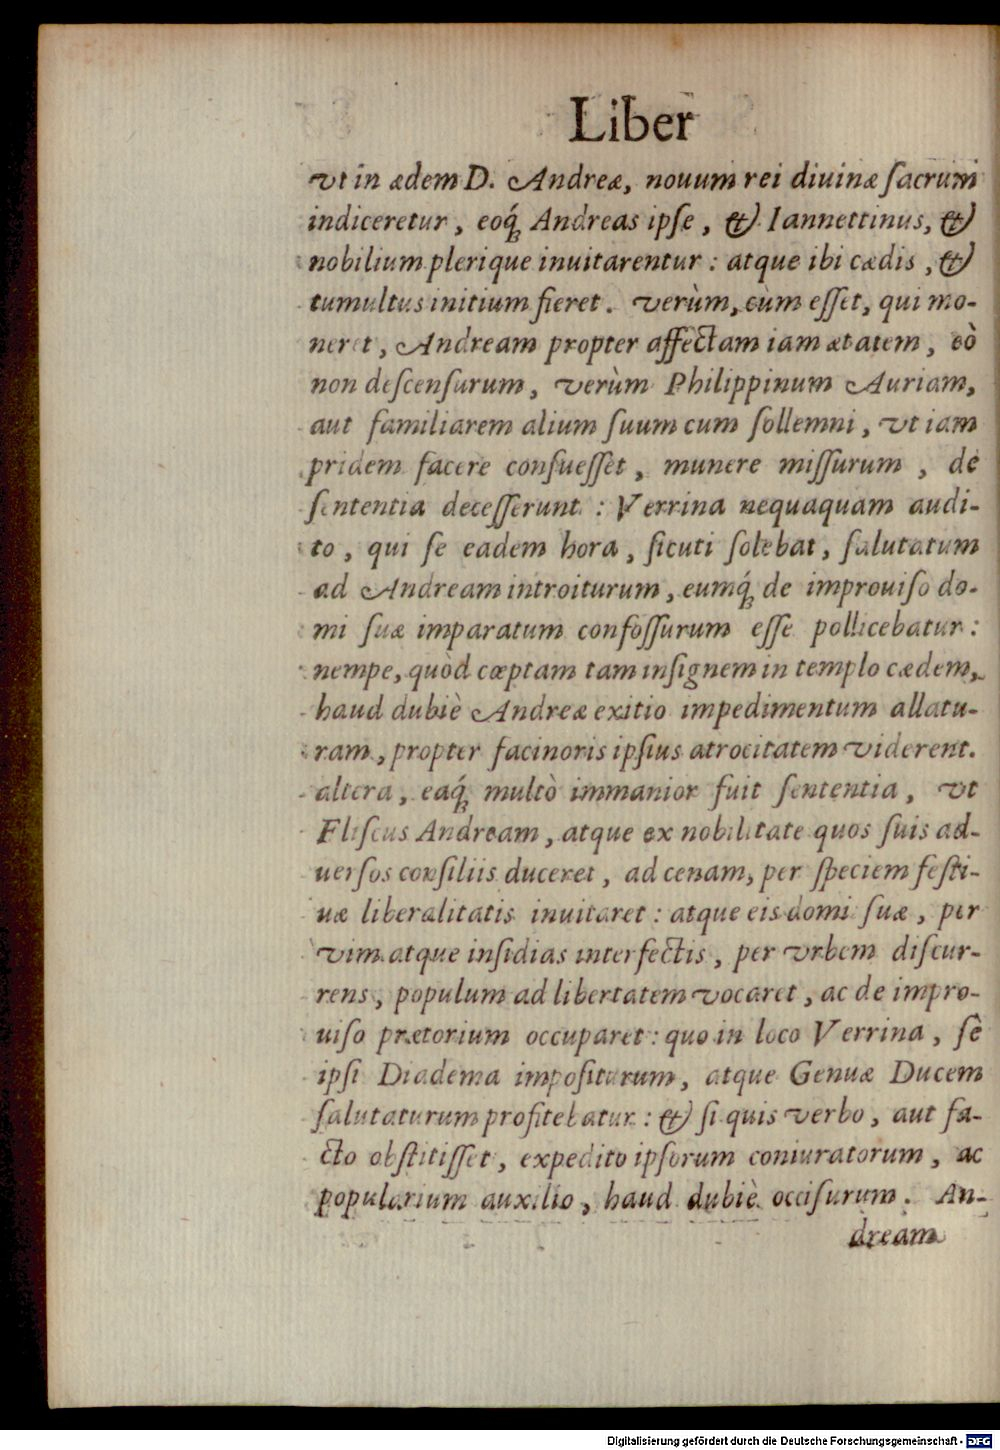 Liber
vt in ædem D. Andreæ, nouum rei diuinæ ſacrum
indiceretur, eoq́ꝫ Andreas ipſe, & Iannettinus, &
nobilium plerique inuitarentur: atque ibi cædis, &
tumultus initium fieret. verùm, cùm eſſet, qui mo-
neret, Andream propter affectam iam ætatem, eò
non deſcenſurum, verùm Philippinum Auriam,
aut familiarem alium ſuum cum ſollemni, vt iam
pridem facere conſueſſet, munere miſſurum, de
ſententia deceſſerunt: Verrina nequaquam audi-
to, qui ſe eadem hora, ſicuti ſolebat, ſalutatum
ad Andream introiturum, eumq́ꝫ de improuiſo do-
mi ſuæ imparatum confoſſurum eſſe pollicebatur:
nempe, quòd cœptam tam inſignem in templo cædem,
haud dubiè Andreæ exitio impedimentum allatu-
ram, propter facinoris ipſius atrocitatem viderent.
altera, eaq́ꝫ multò immanior fuit ſententia, vt
Fliſcus Andream, atque ex nobilitate quos ſuis ad-
uerſos conſiliis duceret, ad cenam, per ſpeciem feſti-
uæ liberalitatis inuitaret: atque eis domi ſuæ, per
vim atque inſidias interfectis, per vrbem diſcur-
rens, populum ad libertatem vocaret, ac de impro-
uiſo prætorium occuparet: quo in loco Verrina, ſe
ipſi Diadema impoſiturum, atque Genuæ Ducem
ſalutaturum profitebatur: & ſi quis verbo, aut fa-
cto obſtitiſſet, expedito ipſorum coniuratorum, ac
popularium auxilio, haud dubiè occiſurum. An-
dream
Digitalisierung gefördert durch die Deutsche Forschungsgemeinschaft - DFG